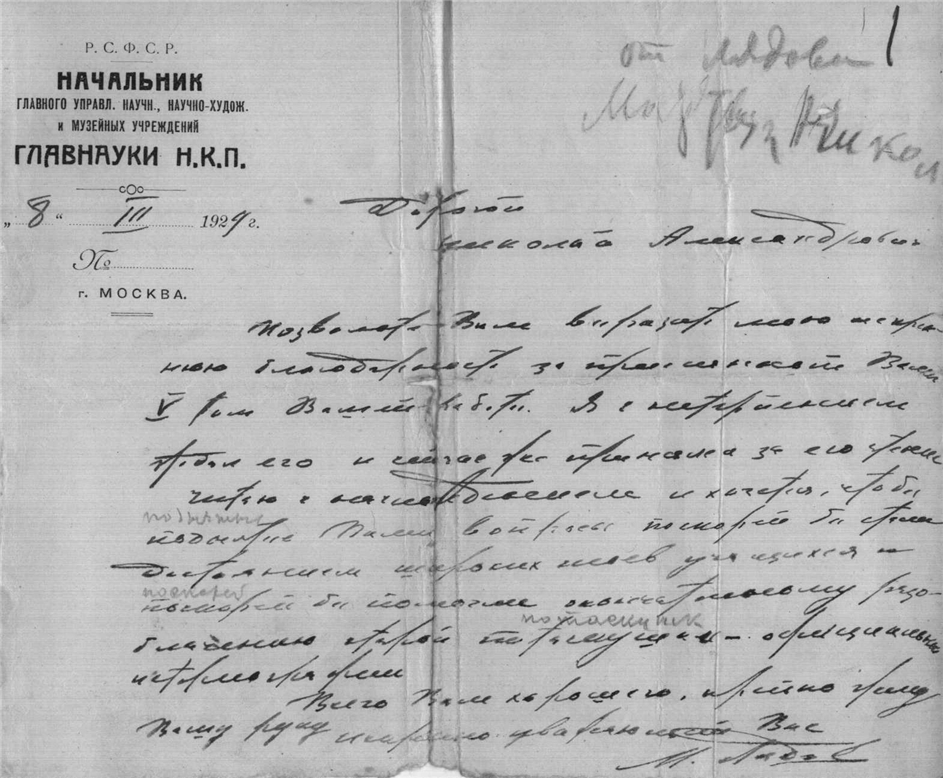 Р. С. Ф. С. Р.
НАЧАЛЬНИК
ГЛАВНОГО УПРАВЛ. НАУЧН., НАУЧНО-ХУДОЖ.
и МУЗЕЙНЫХ УЧРЕЖДЕНИЙ
ГЛАВНАУКИ Н.К.П.
„ 8 “ III 1929 г.
№
г. МОСКВА.
1
от Лядова
Мартына Никол
Дорогой
Николай Александрович
Позвольте Вам выразить мою искрен-
нюю благодарность за присланный Вами
V том Вашей работы. Я с нетерпением
ждал его и сейчас же принялся за его чтение
читаю с наслаждением и хочется, чтобы
поднятые
поднятые Вами вопросы поскорей бы стали
достоянием широких слоев учащихся и
поскорей
поскорей бы помогли окончательному разо-
потаскушк
блачению старой потаскушки - официальной
историографии
Всего Вам хорошего, крепко жму
Вашу руку искренно уважающий Вас
М. Лядов